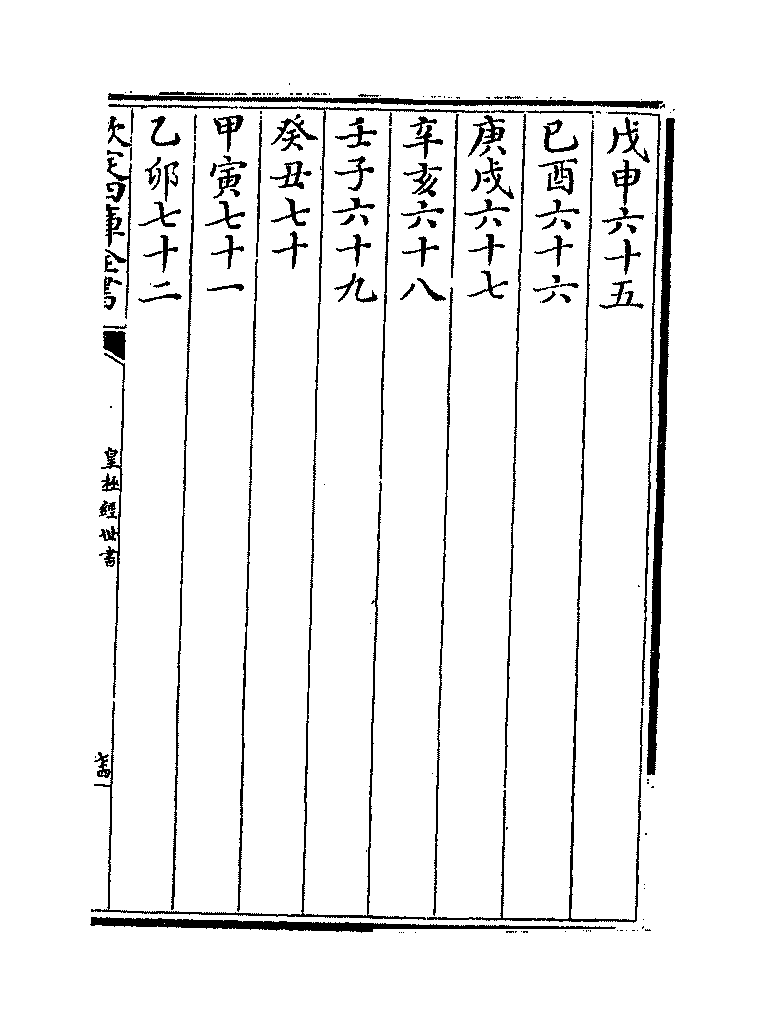 戊申六十五
已酉六十六
庚戌六十七
辛亥六十八
壬子六十九
癸丑七十
甲寅七十一
乙卯七十二
欽定四庫全書
皇極經世書